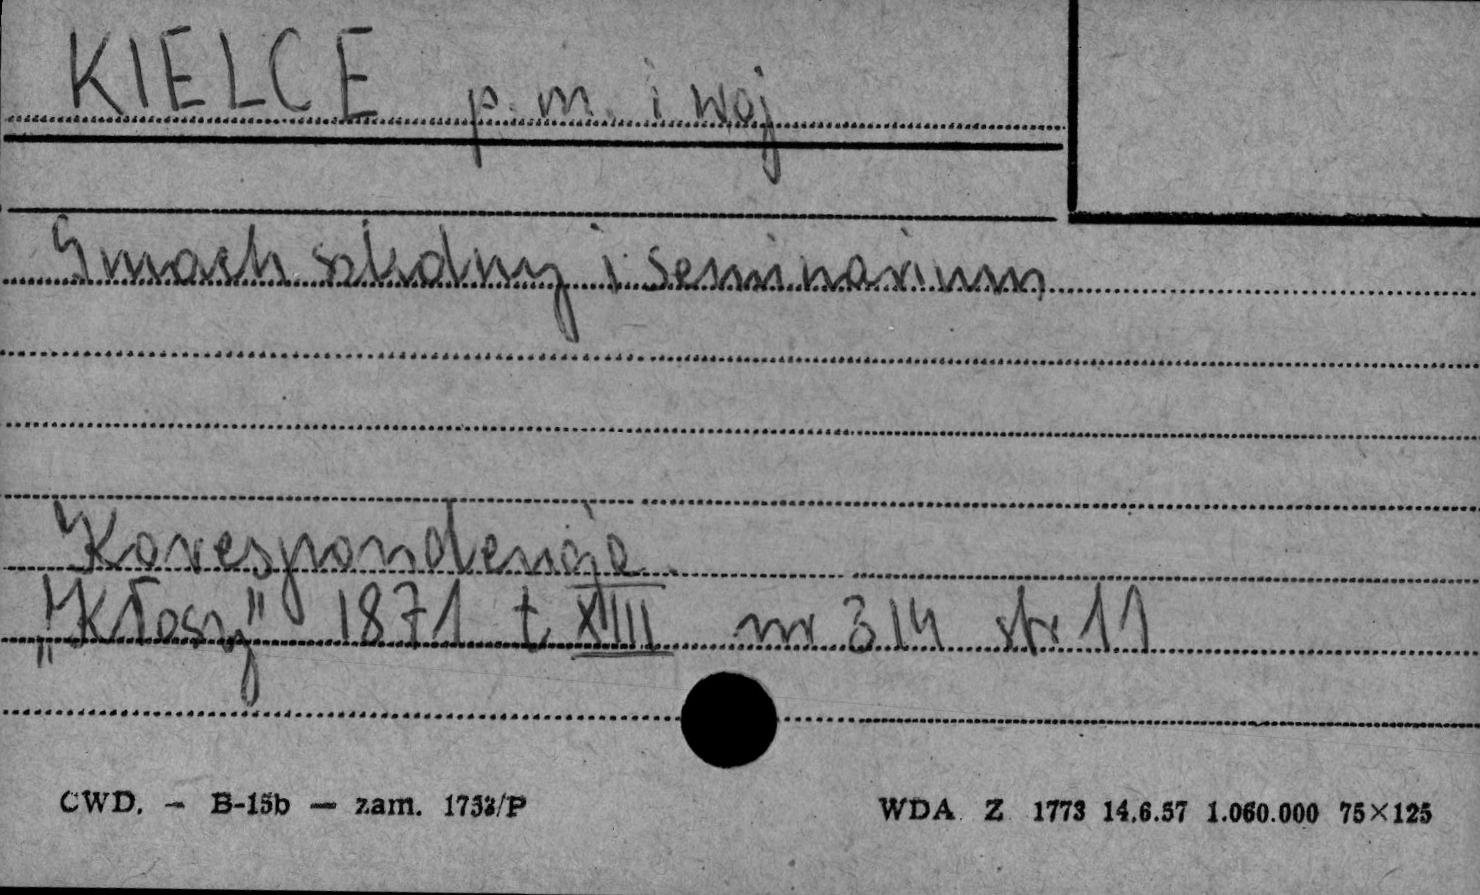 KIELCE p. m. i woj
Gmach szkolny i seminarium
Korespondencja.
„Kłosy" 1871 t XIII nr 314 str 11
CWD. — B-15b — zam. 1753/P
WDA Z 1773 14.6.57 1.060.000 75×125